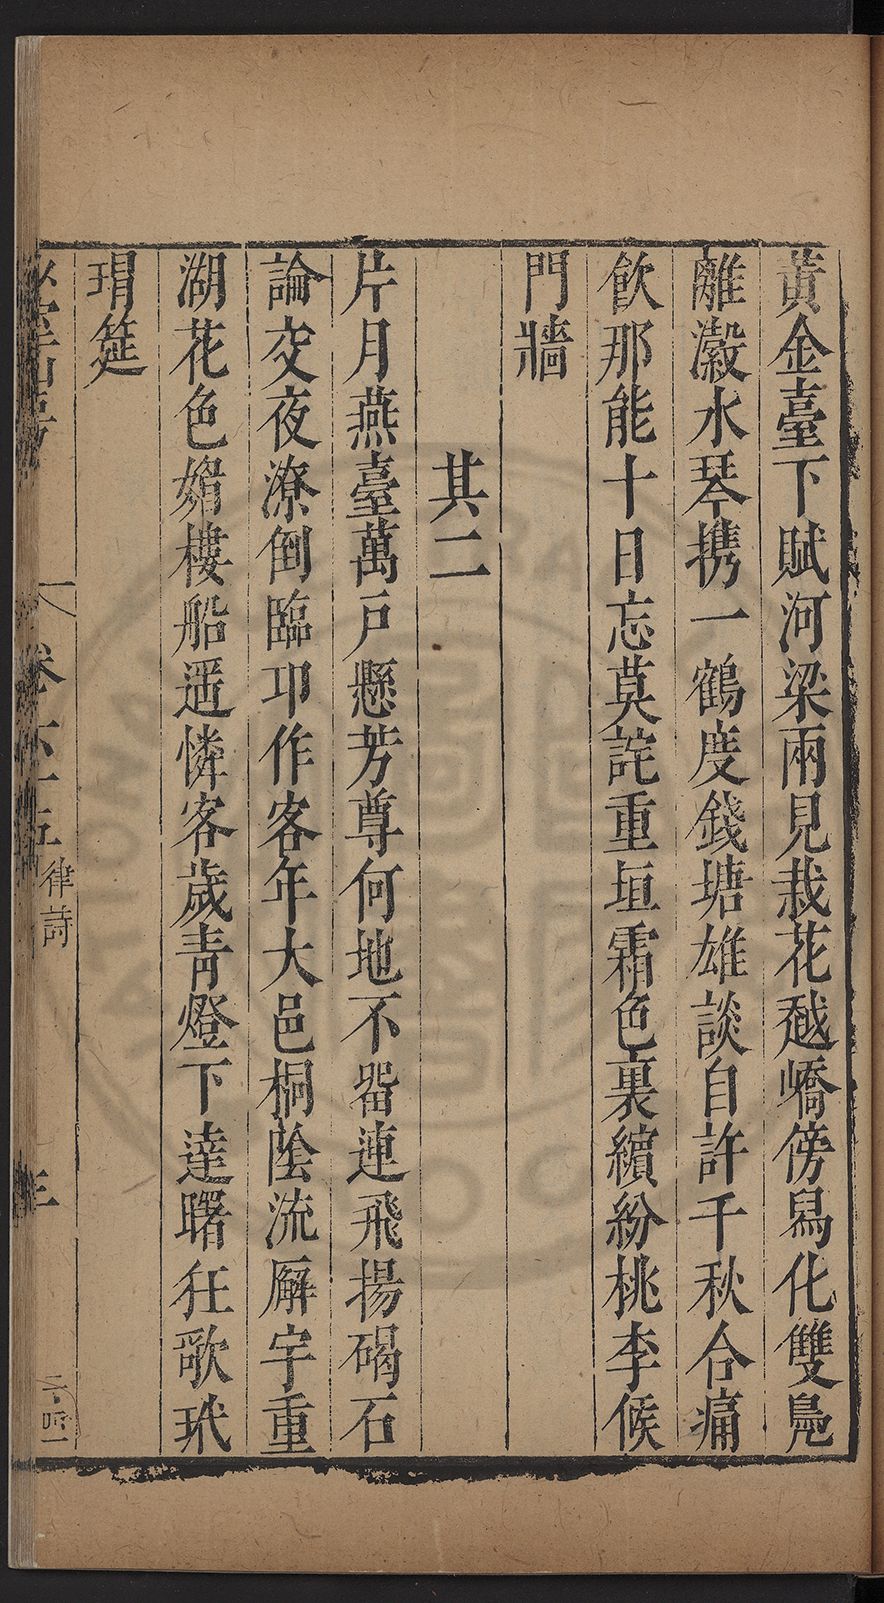 黃金臺下賦河梁兩見栽花越嶠傍舄化雙鳧
離瀫水琴攜一鶴度錢塘雄談自許千秋合痛
飲那能十日忘莫詫重垣霜色裏繽紛桃李候
門牆
其二
片月燕臺萬戶懸芳尊何地不留連飛揚碣石
論交夜潦倒臨卭作客年大邑桐陰流廨宇重
湖花色媚樓船遥憐客歲青燈下達曙狂歌玳
瑁筵
卷六十五 律詩